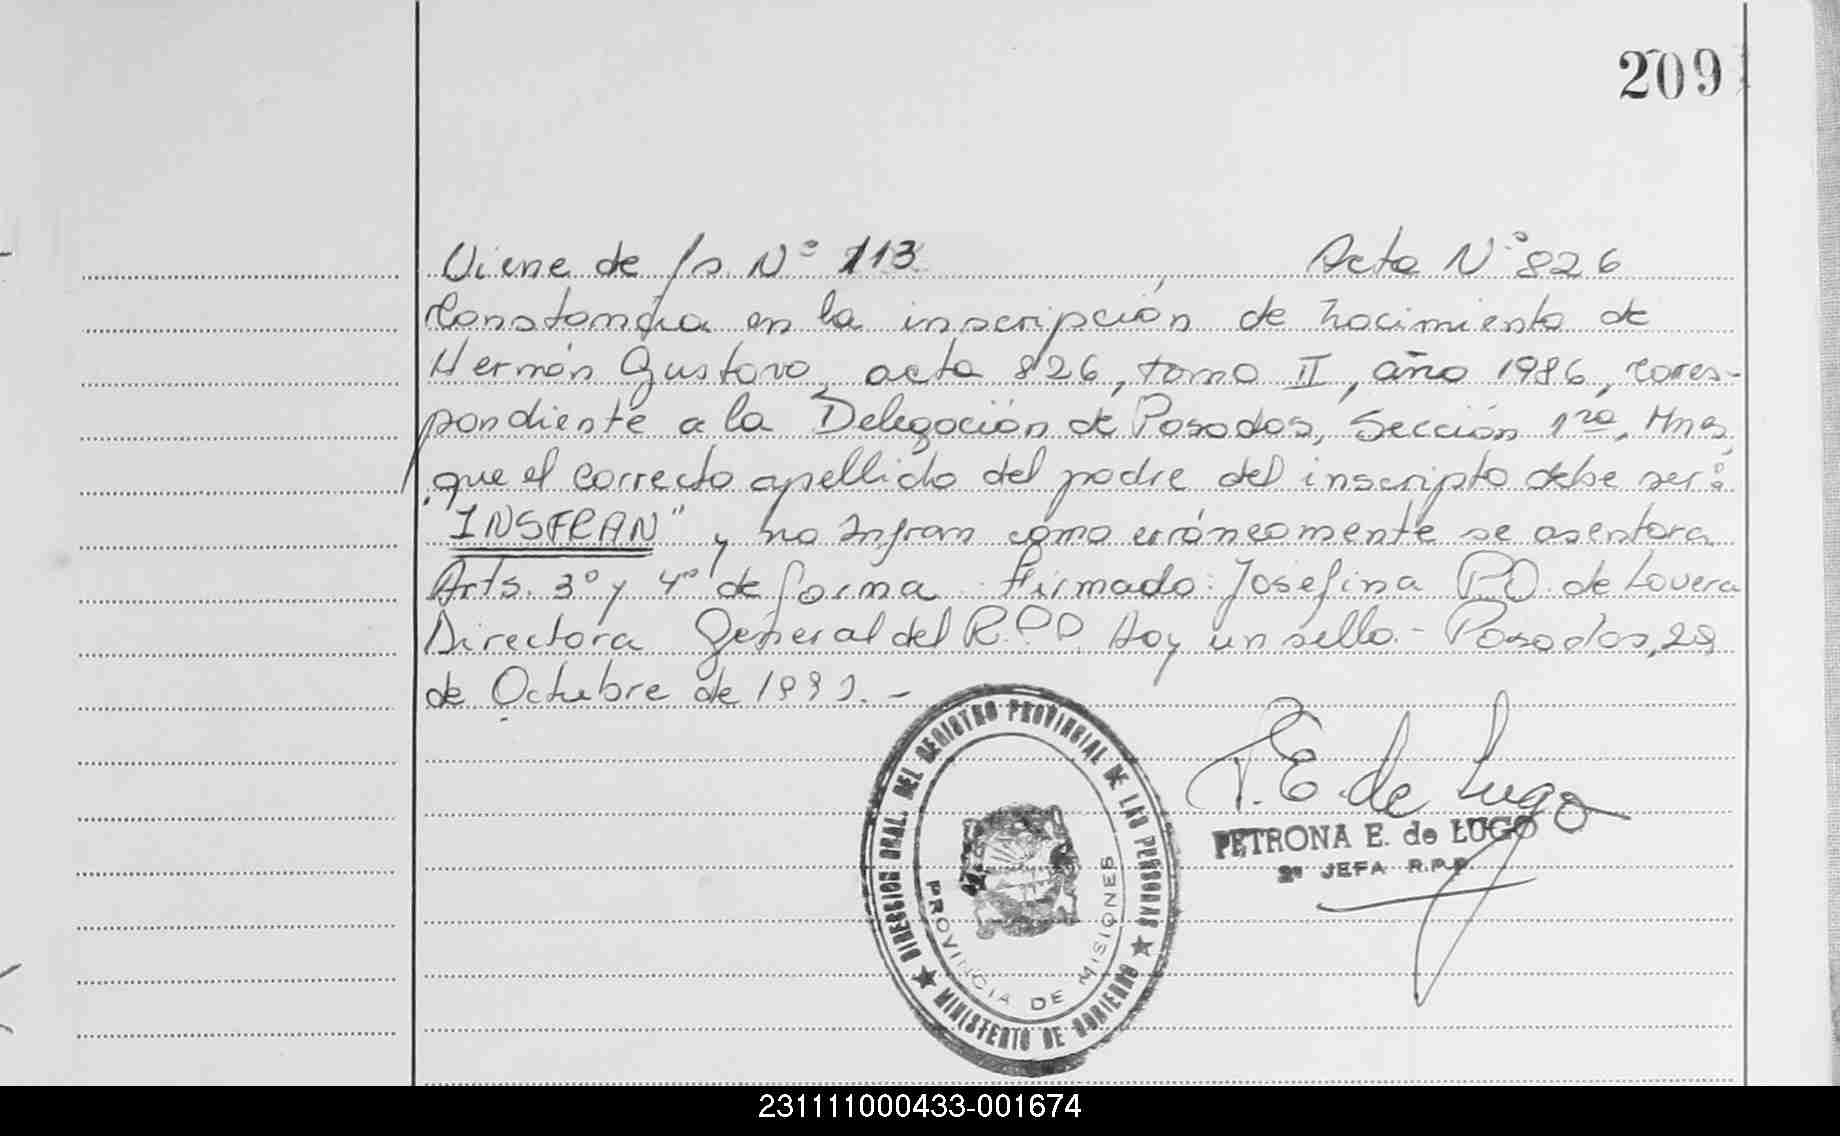 209
Viene de fs. Nº 113 Acta Nº 826
Constancia en la inscripción de nacimiento de
Hernán Gustavo, acta 826, tomo II, año 1986, corres-
pondiente a la Delegación de Posadas, Sección 1ra, Mnes,
que el correcto apellido del padre del inscripto debe ser:
"INSFRAN" y no Infran como erróneamente se asentara
Arts. 3º y 4º de forma. Firmado: Josefina P.O. de Lovera
Directora General del R.P.P. Hay un sello.- Posadas, 29
de Octubre de
P.E. de Lugo
PETRONA E. de LUGO
2ª JEFA R.P.P.
DIRECCION GRAL. DEL REGISTRO PROVINCIAL DE LAS PERSONAS
★ MINISTERIO DE GOBIERNO ★
PROVINCIA DE MISIONES
231111000433-001674